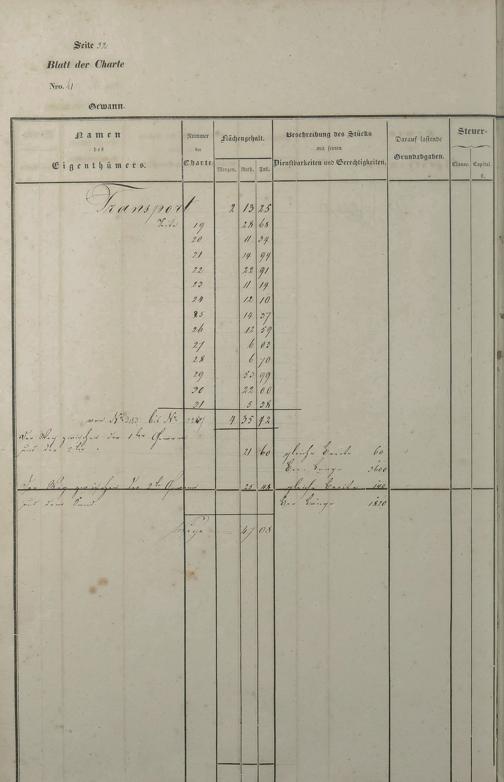 Seite 32
Blatt der Charte
Nro. 41
Gewann.
Namen des Eigenthümers. Nummer der Charte Flächengehalt. Morgen. Ruth. Fuß. Beschreibung des Stücks mit seinen Dienstbarkeiten und Gerechtigkeiten. Darauf lastende Grundabgaben. Steuer- Classe. Capital. f.
Transport 2 13 25
19 28 68
20 11 34
21 14 94
22 22 91
23 11 14
24 12 10
25 14 37
26 12 59
27 6 03
28 6 70
29 53 99
30 22 00
31 5 38
von No 383 bis No 4 35 42
Der Weg zwischen der 1ten Gewann
und der 2ten 21 60 gleiche Breite 60
Länge 3600
Der Weg zwischen der 2ten Gewann 25 48 gleiche Breite 140
und dem Länge 1820
47 08